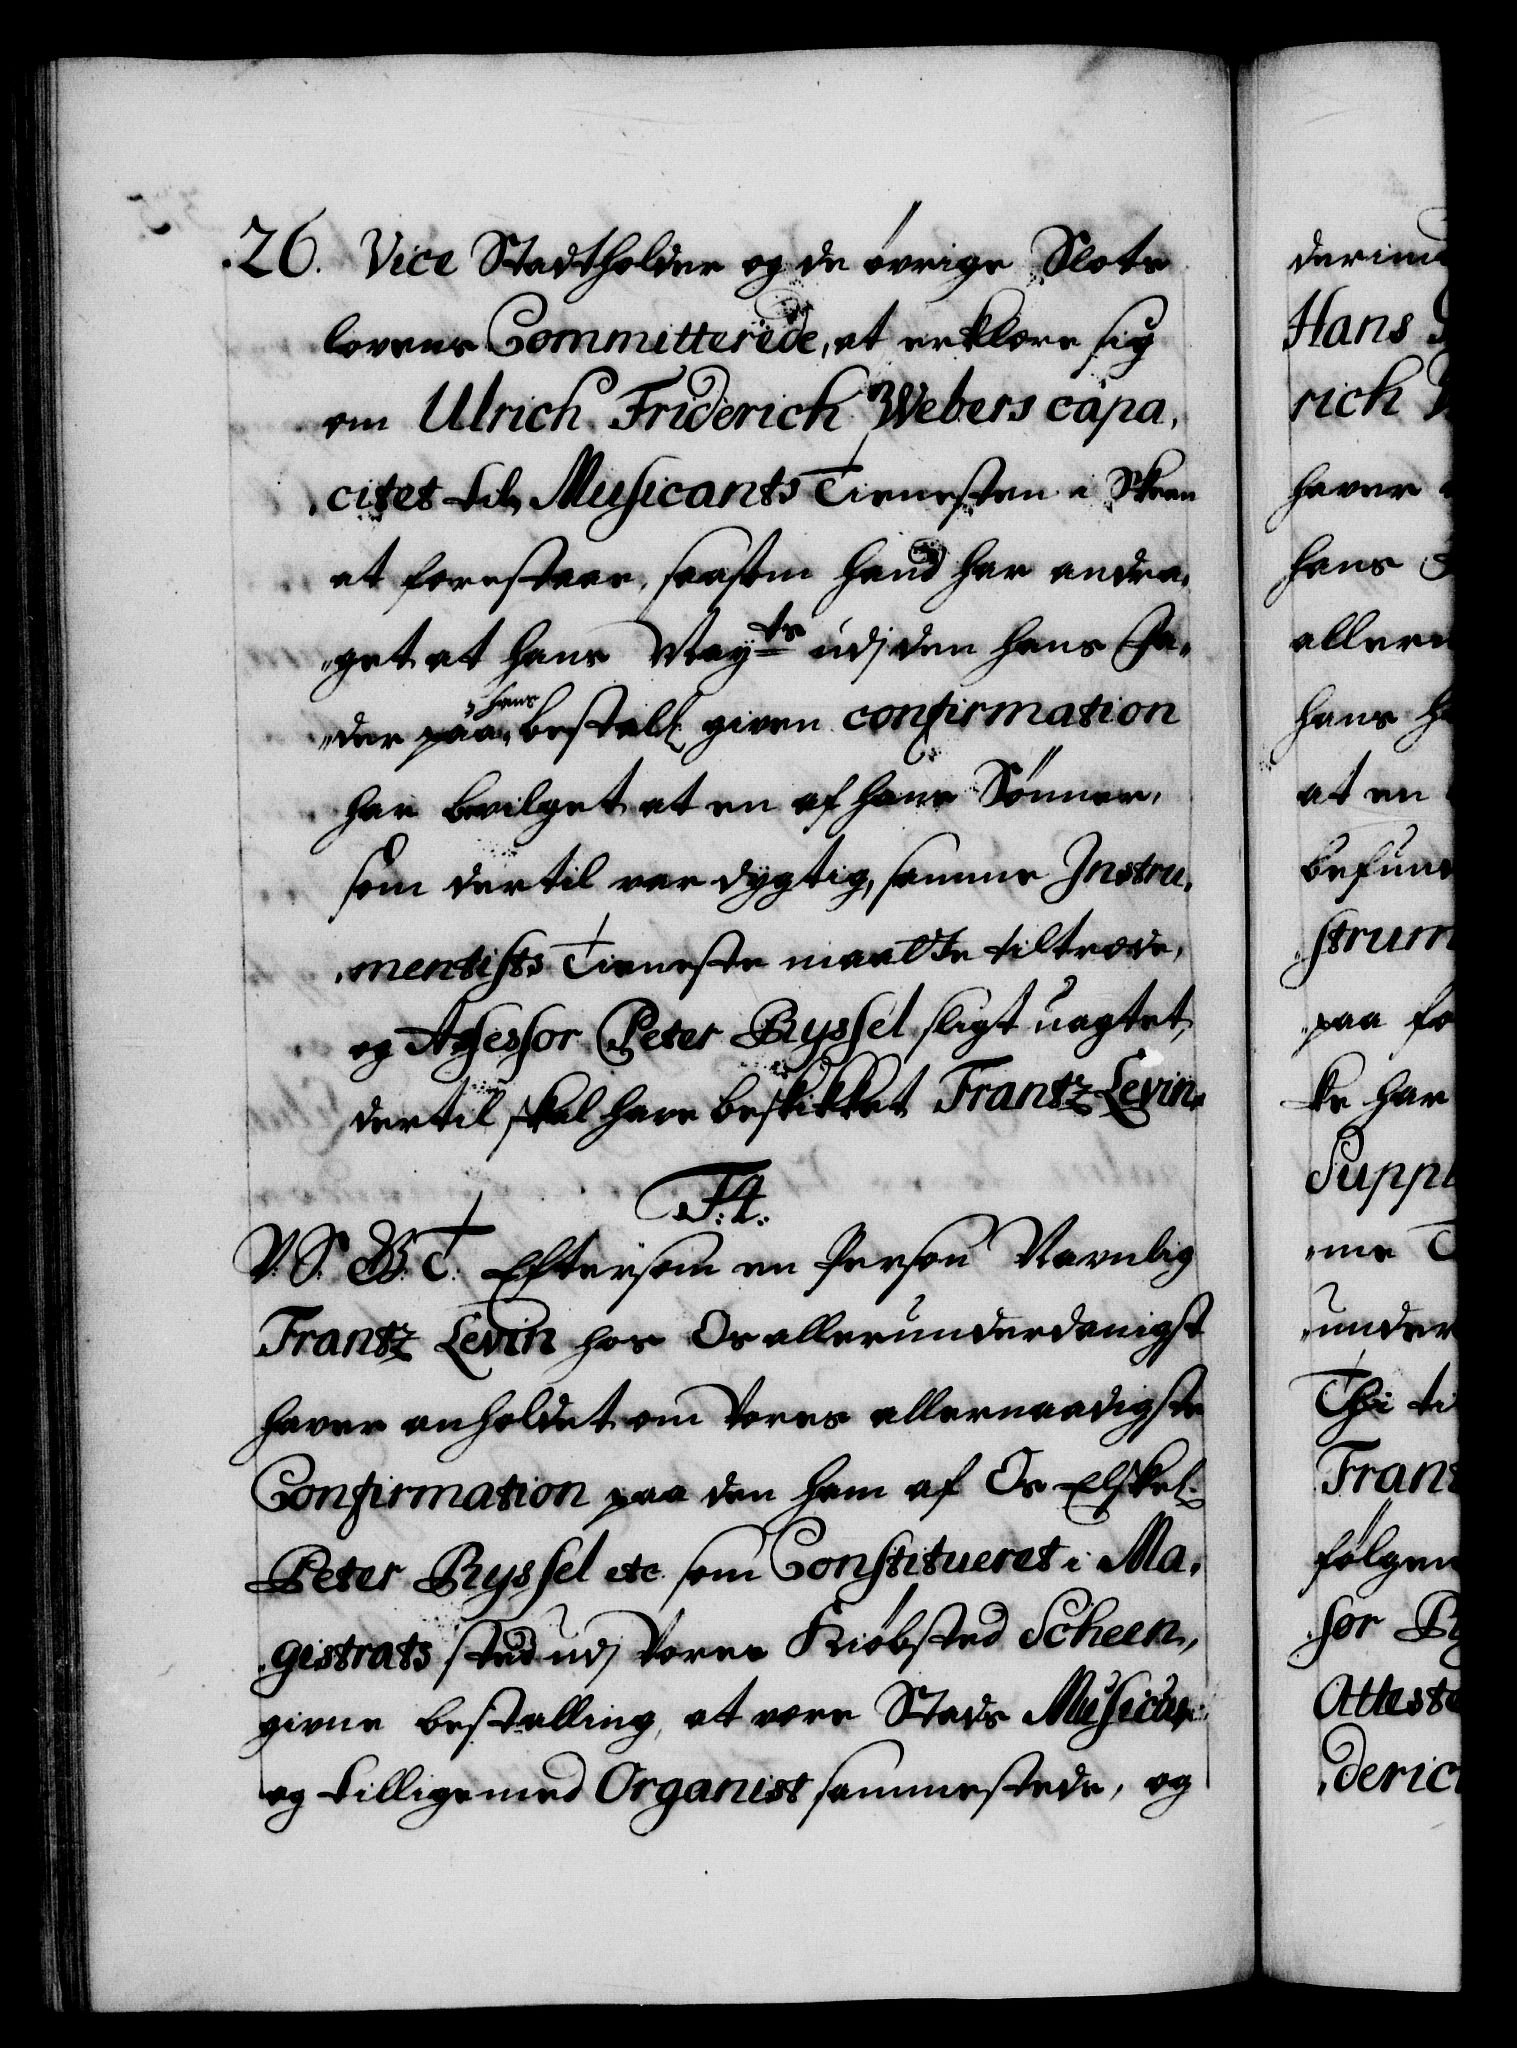 26. Vice Stadtholder og de øvrige Slots
lovens Committerede, at erklære sig
om Ulrich Friderich Webers capa,
citet til Musicants Tienesten i Skeen
at forestaae, saasom hand har andra,
get at hans May:ts udj den hans Fa,
der paa hans bestall: given confirmation
har bevilget at en af hans Sønner,
som dertil var dygtig, samme Instru,
mentists Tieneste maatte tiltræde,
og Assessor Peter Ryssel sligt uagtet,
dertil skal have beskikket Frantz Levin.
F:4.
V. S. G. T. Eftersom en Person Navnlig
Frantz Levin hos Os allerunderdanigst
haver anholdet om Vores allernaadigste
Confirmation paa den ham af Os Elskel:
Peter Ryssel etc som Constitueret i Ma,
gistrats sted udj Vores Kiøbsted Scheen,
givne bestalling, at være Stads Musicus
og tilligemed Organist sammesteds, og
derimo
Hans
rich
haver
hans
allern
hans
at en
befund
strum
paa fo
ke har
Suppl
me
under
Thi ti
Frant
følgen
sor Ry
Atteste
deric